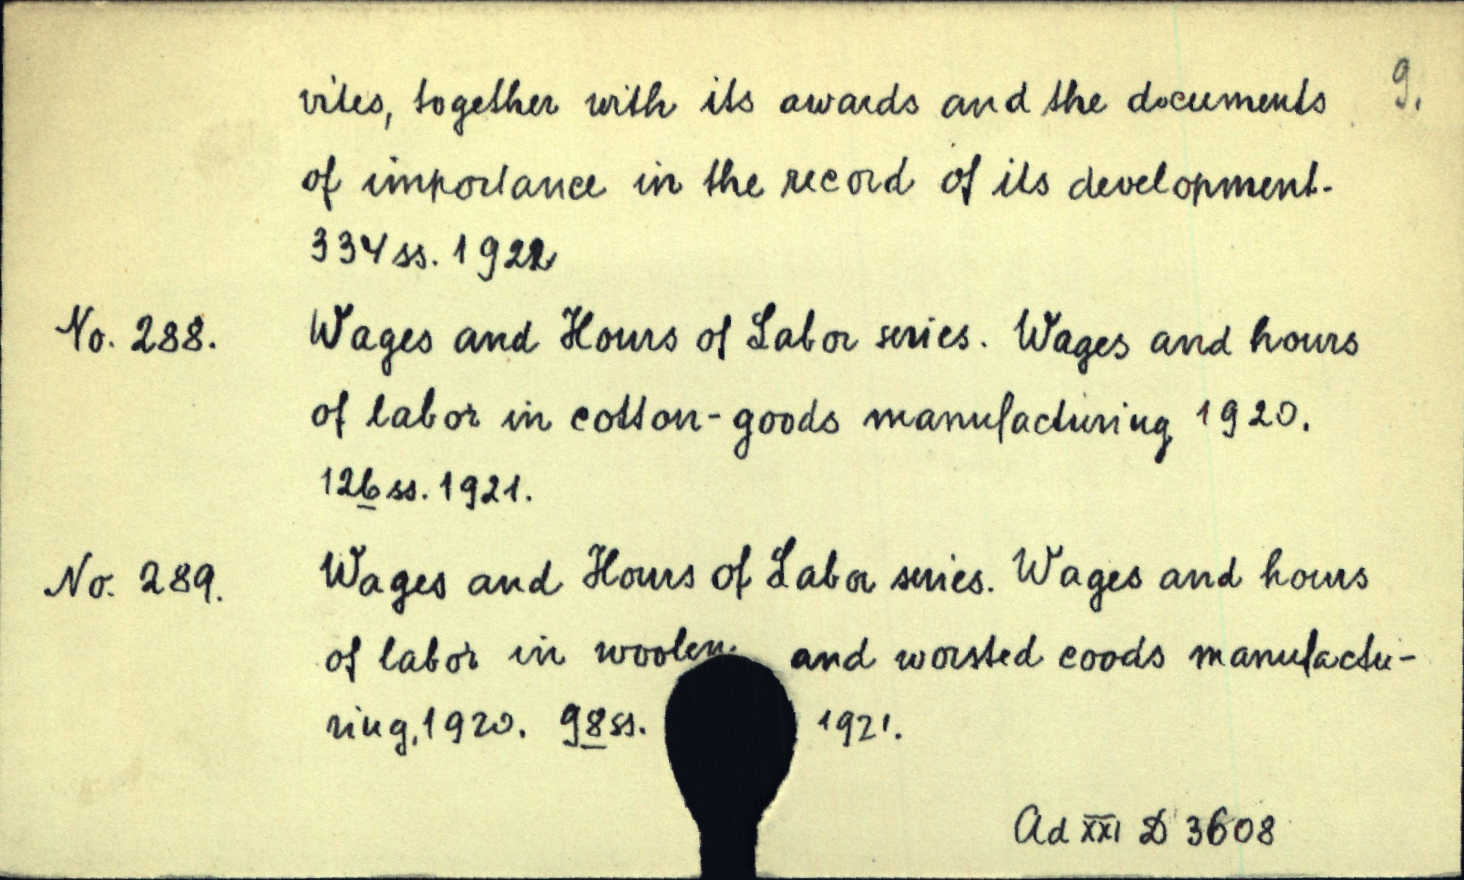 9.
vites, together with its awards and the documents
of importance in the record of its development.
334 ss. 1922
No. 288. Wages and Hours of Labor series. Wages and hours
of labor in cotton-goods manufacturing 1920.
126 ss. 1921.
No. 289. Wages and Hours of Labor series. Wages and hours
of labor in woolen and worsted coods manufactu-
ring, 1920. 98 ss. 1921.
Ad XXI D 3608